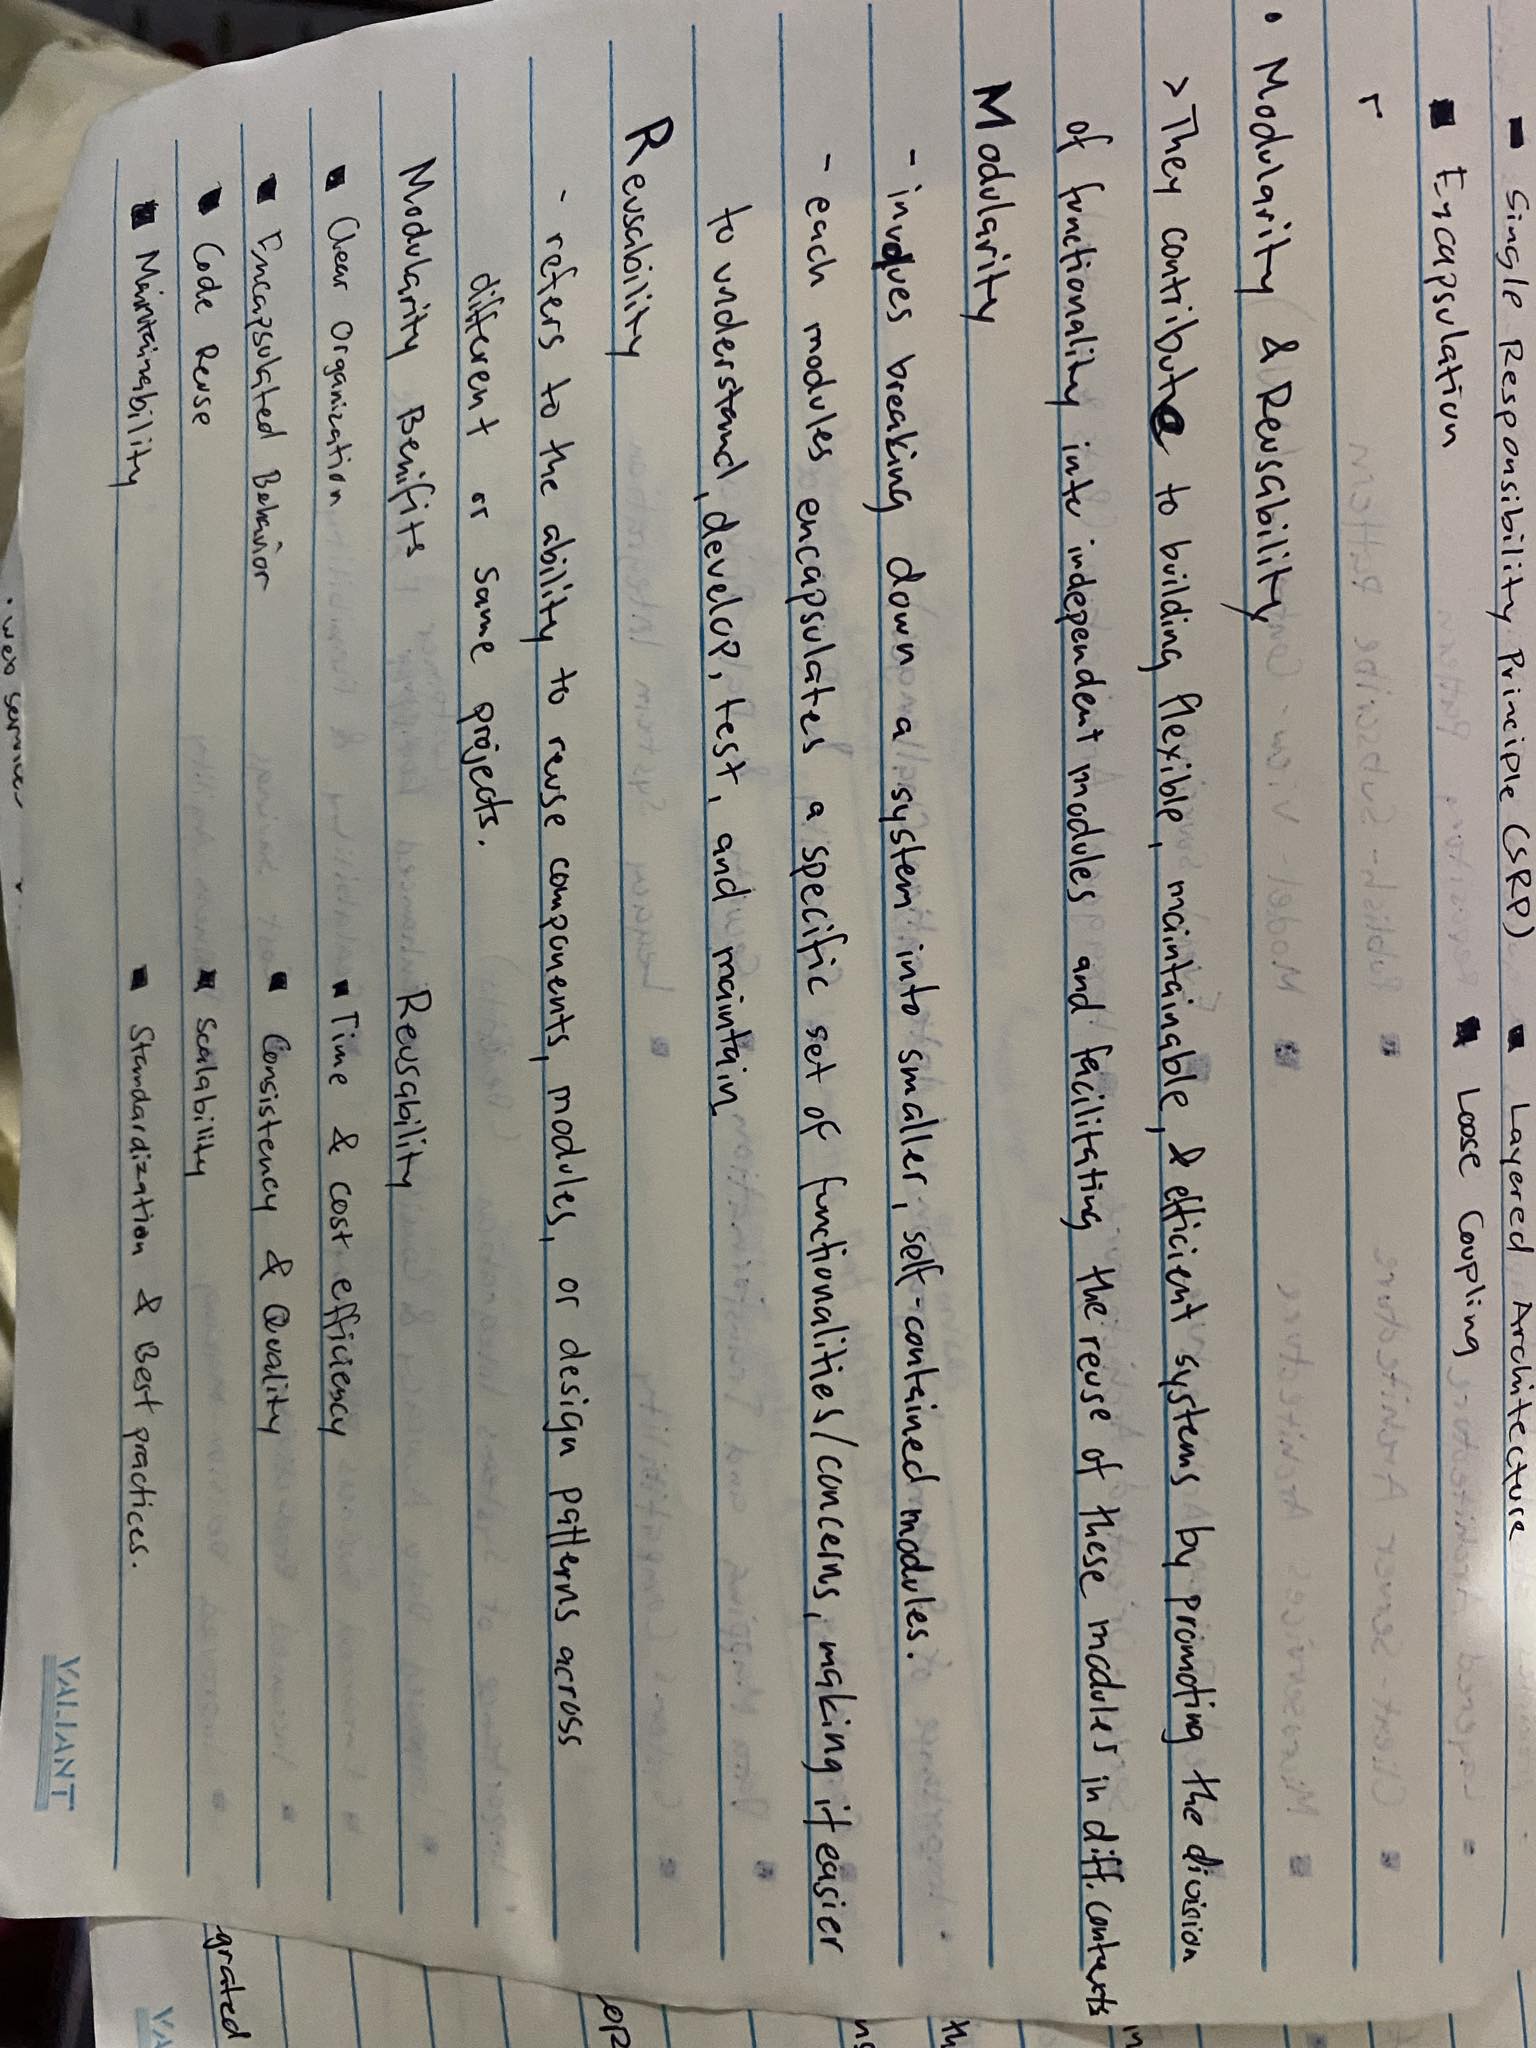 Single Responsibility Principle (SRP)
Layered Architecture
Encapsulation
Loose Coupling
r
• Modularity & Reusability
> They contribute to building flexible, maintainable, & efficient systems by promoting the division
of functionality into independent modules and facilitating the reuse of these modules in diff. contexts
Modularity
- involves breaking down a system into smaller, self-contained modules.
- each modules encapsulates a specific set of functionalities/concerns, making it easier
to understand, develop, test, and maintain
Reusability
- refers to the ability to reuse components, modules, or design patterns across
different or same projects.
Modularity Benifits
Reusability
Clear Organization
Time & cost efficiency
Encapsulated Behavior
Consistency & Quality
Code Reuse
Scalability
Maintainability
Standardization & Best practices.
VALIANT
grated
• web services